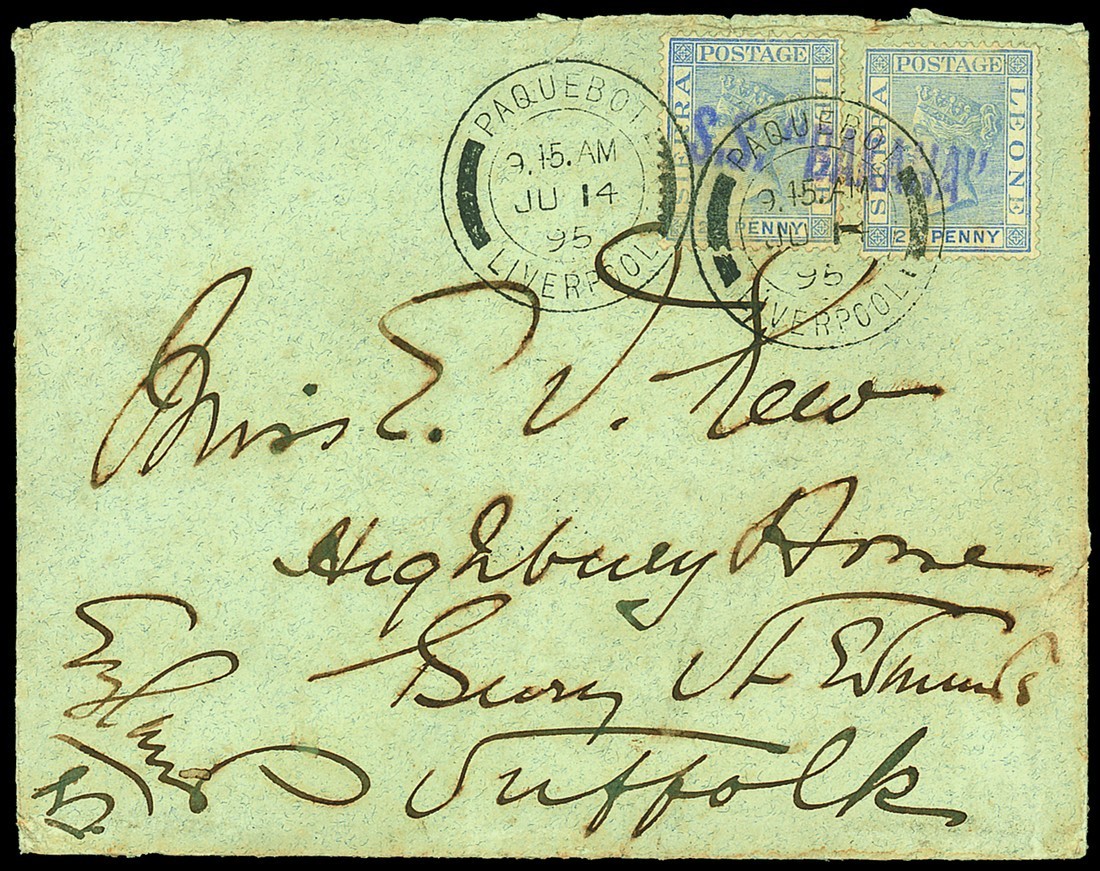 POSTAGE
SIERRA LEONE
PENNY
POSTAGE
SIERRA LEONE
2 PENNY
S.S. "BAKANA"
PAQUEBOT
9.15.AM
JU 14
95
LIVERPOOL
PAQUEBOT
9.15.AM
JU 1
95
LIVERPOOL
Miss E. V. Rew
Highbury House
Bury St Edmunds
Suffolk
England